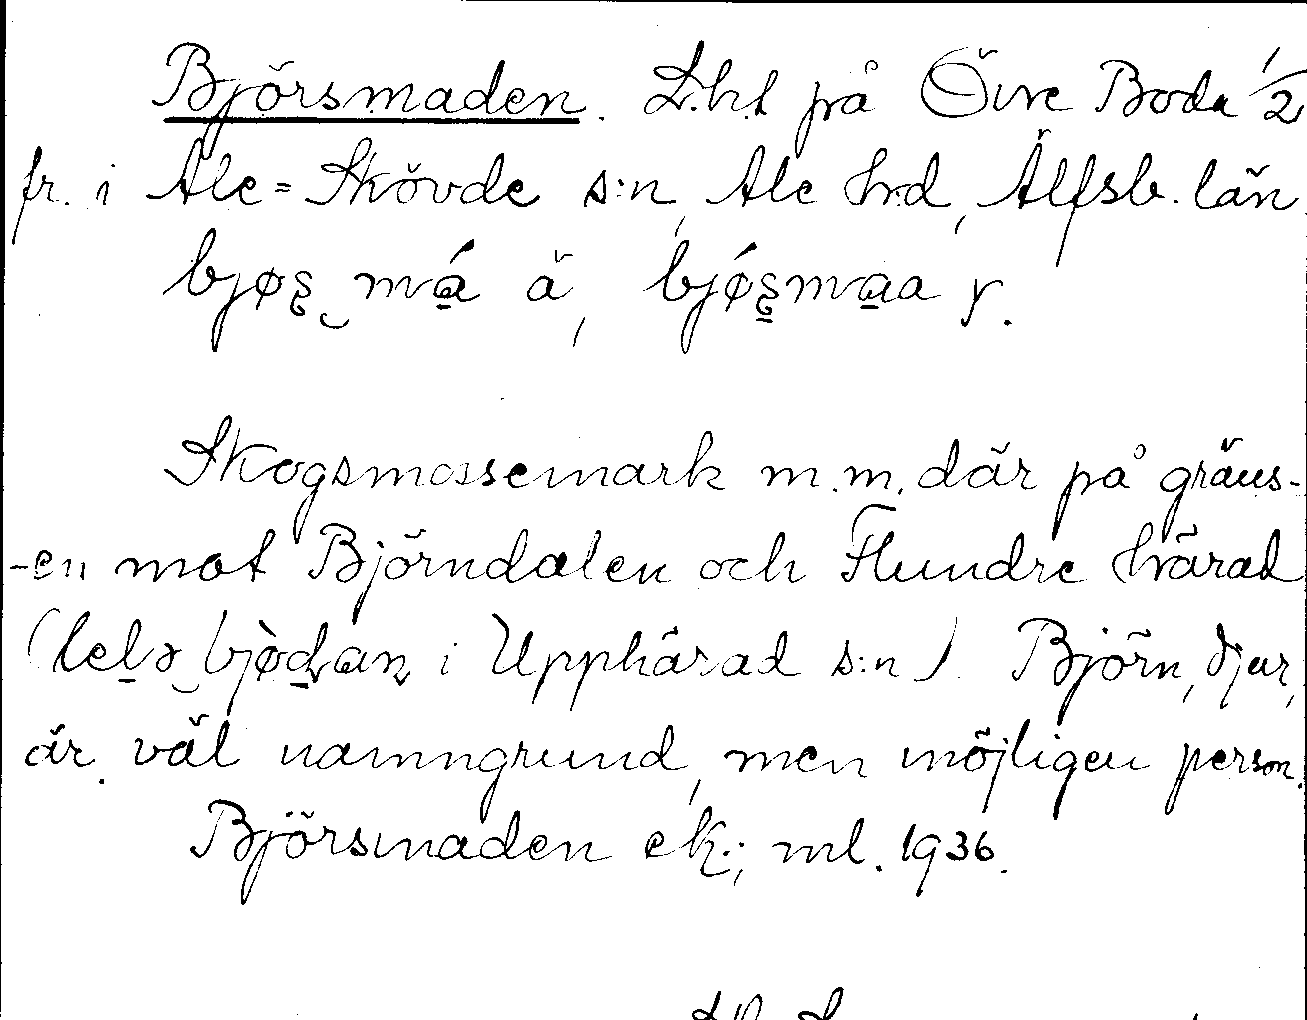 Björsmaden. L.h.t på Övre Boda 1/2
fr. i Ale=Skövde s:n, Ale hd, Älfsb. län.
bjøʂ‿má ä, bjǿʂmaa y.
Skogsmossemark m.m. där på gräns-
-en mot Björndalen och Flundre härad
(lelə‿bjødan i Upphärad s:n). Björn, djur,
är väl namngrund, men möjligen person.
Björsmaden ek.; ml. 1936.